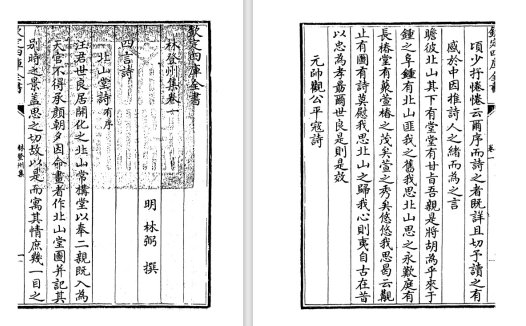 欽定四庫全書
林登州集卷一
明 林弼 撰
四言詩
北山堂詩有序
汪君世良居開化之北山常構堂以奉二親既入為
天官不得承顏朝夕因命畫者作北山堂圖并記其
別時之景蓋思之切故以是而寓其情庶幾一目之
欽定四庫全書
林登州集
欽定四庫全書
卷一
頃少抒惓惓云爾序而詩之者既詳且切予讀之有
感於中因推詩人之緒而為之言
瞻彼北山其下有堂堂有甘旨吾親是將胡為乎來于
鍾之阜鍾有北山匪我之舊我思北山思之永歎庭有
長椿堂有叢萱椿之茂矣萱之秀矣悠悠我思曷云觀
止有圖有詩莫慰我思北山之歸我心則夷自古在昔
以忠為孝嘉爾世良是則是效
元帥觀公平寇詩